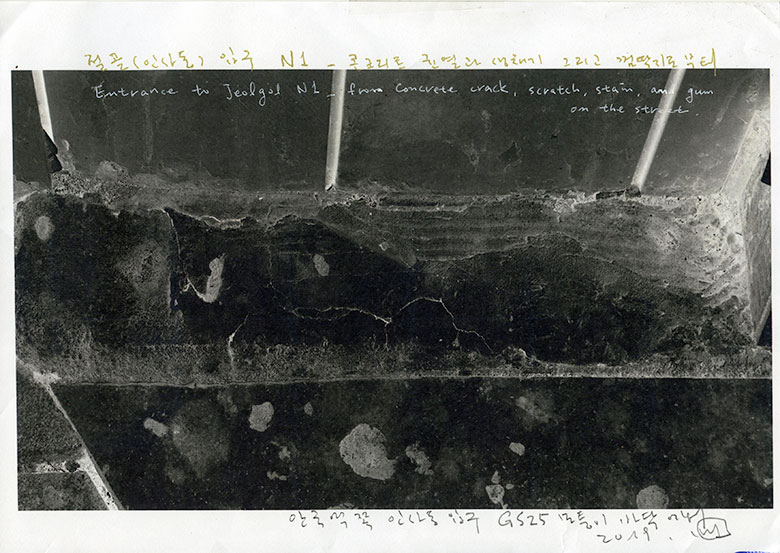 절골(인사동) 입구 N1 - 콘크리트 균열과 생채기 그리고 껌딱지로부터
Entrance to Jeolgol N1 - from Concrete crack, scratch, stain, and gum
on the street.
안국역쪽 인사동 입구 GS25 모퉁이 바닥에서
2019.